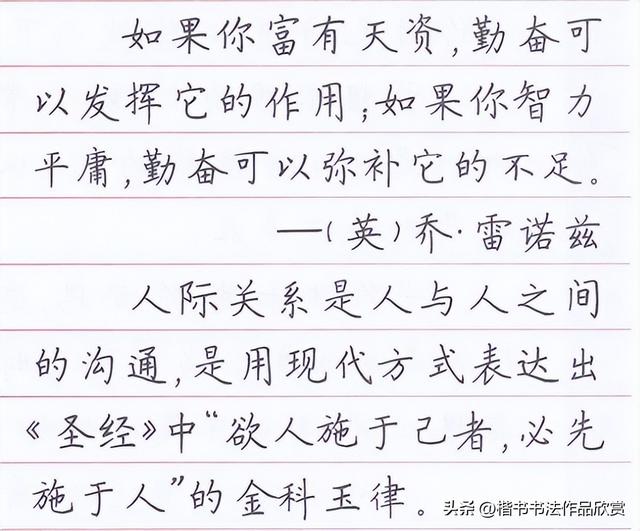 如果你富有天资,勤奋可
以发挥它的作用;如果你智力
平庸,勤奋可以弥补它的不足。
—(英)乔·雷诺兹
人际关系是人与人之间
的沟通,是用现代方式表达出
《圣经》中“欲人施于己者,必先
施于人”的金科玉律。
头条@楷书书法作品欣赏